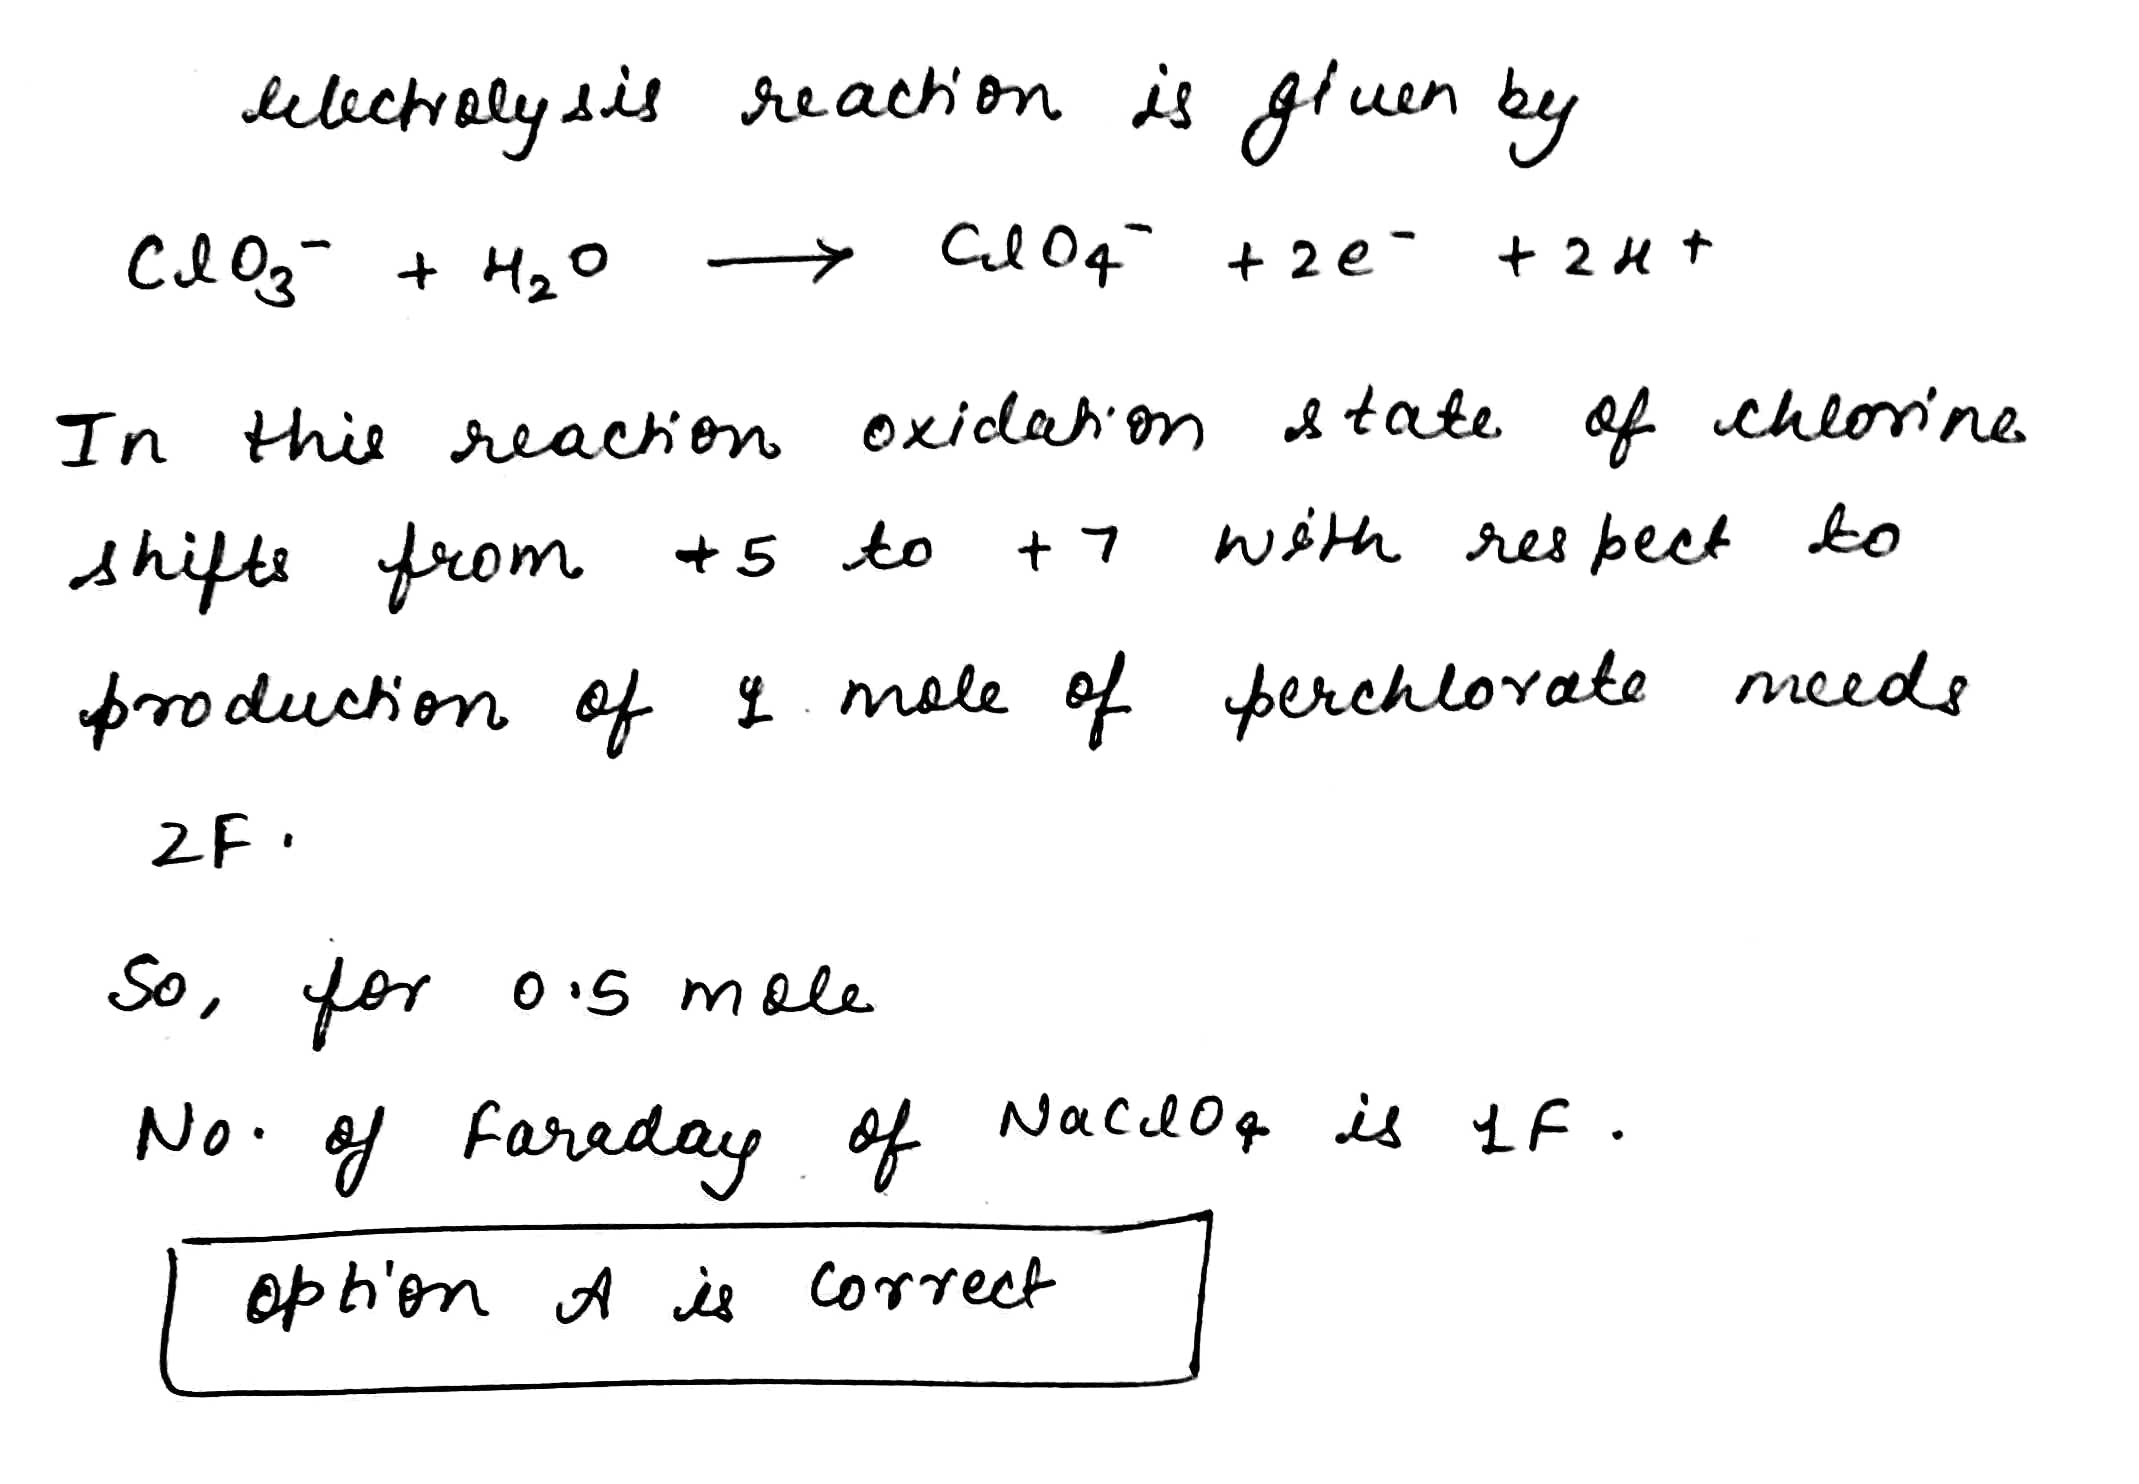 electrolysis reaction is given by
ClO₃⁻ + H₂O ⟶ ClO₄⁻ + 2e⁻ + 2H⁺
In this reaction oxidation state of chlorine
shifts from +5 to +7 with respect to
production of 1 mole of perchlorate needs
2F.
So, for 0.5 mole
No. of Faraday of NaClO₄ is 1F.
option A is correct